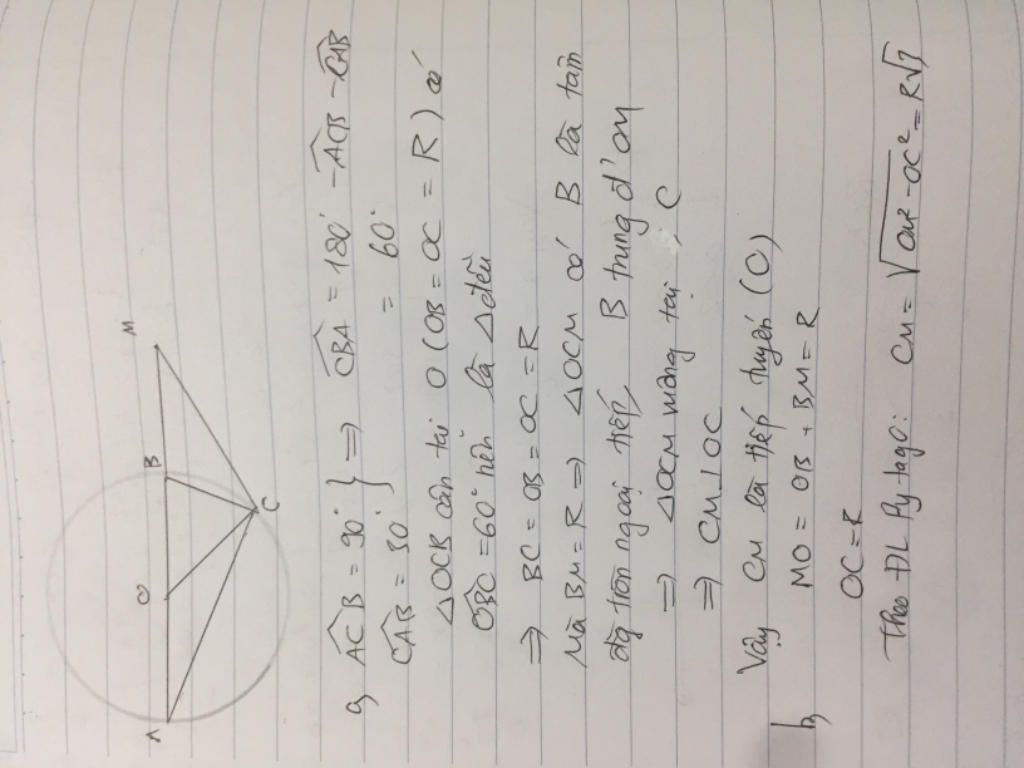 A O B M
C
a, ACB = 90°
CAB = 30° } => CBA = 180° - ACB - CAB
= 60°
△OCB cân tại O (OB = OC = R) có
OBC = 60° nên là △ đều
=> BC = OB = OC = R
Mà BM = R => △OCM có B là tâm
đg tròn ngoại tiếp B trung đ' OM
=> △OCM vuông tại C
=> CM ⊥ OC
Vậy CM là tiếp tuyến (O)
b, MO = OB + BM = R
OC = R
Theo ĐL Pytago: CM = √OM² - OC² = R√